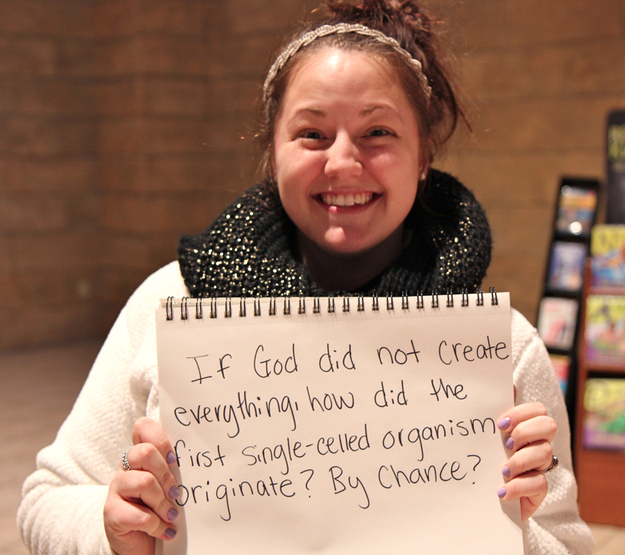 If God did not create
everything, how did the
first single-celled organism
originate? By Chance?